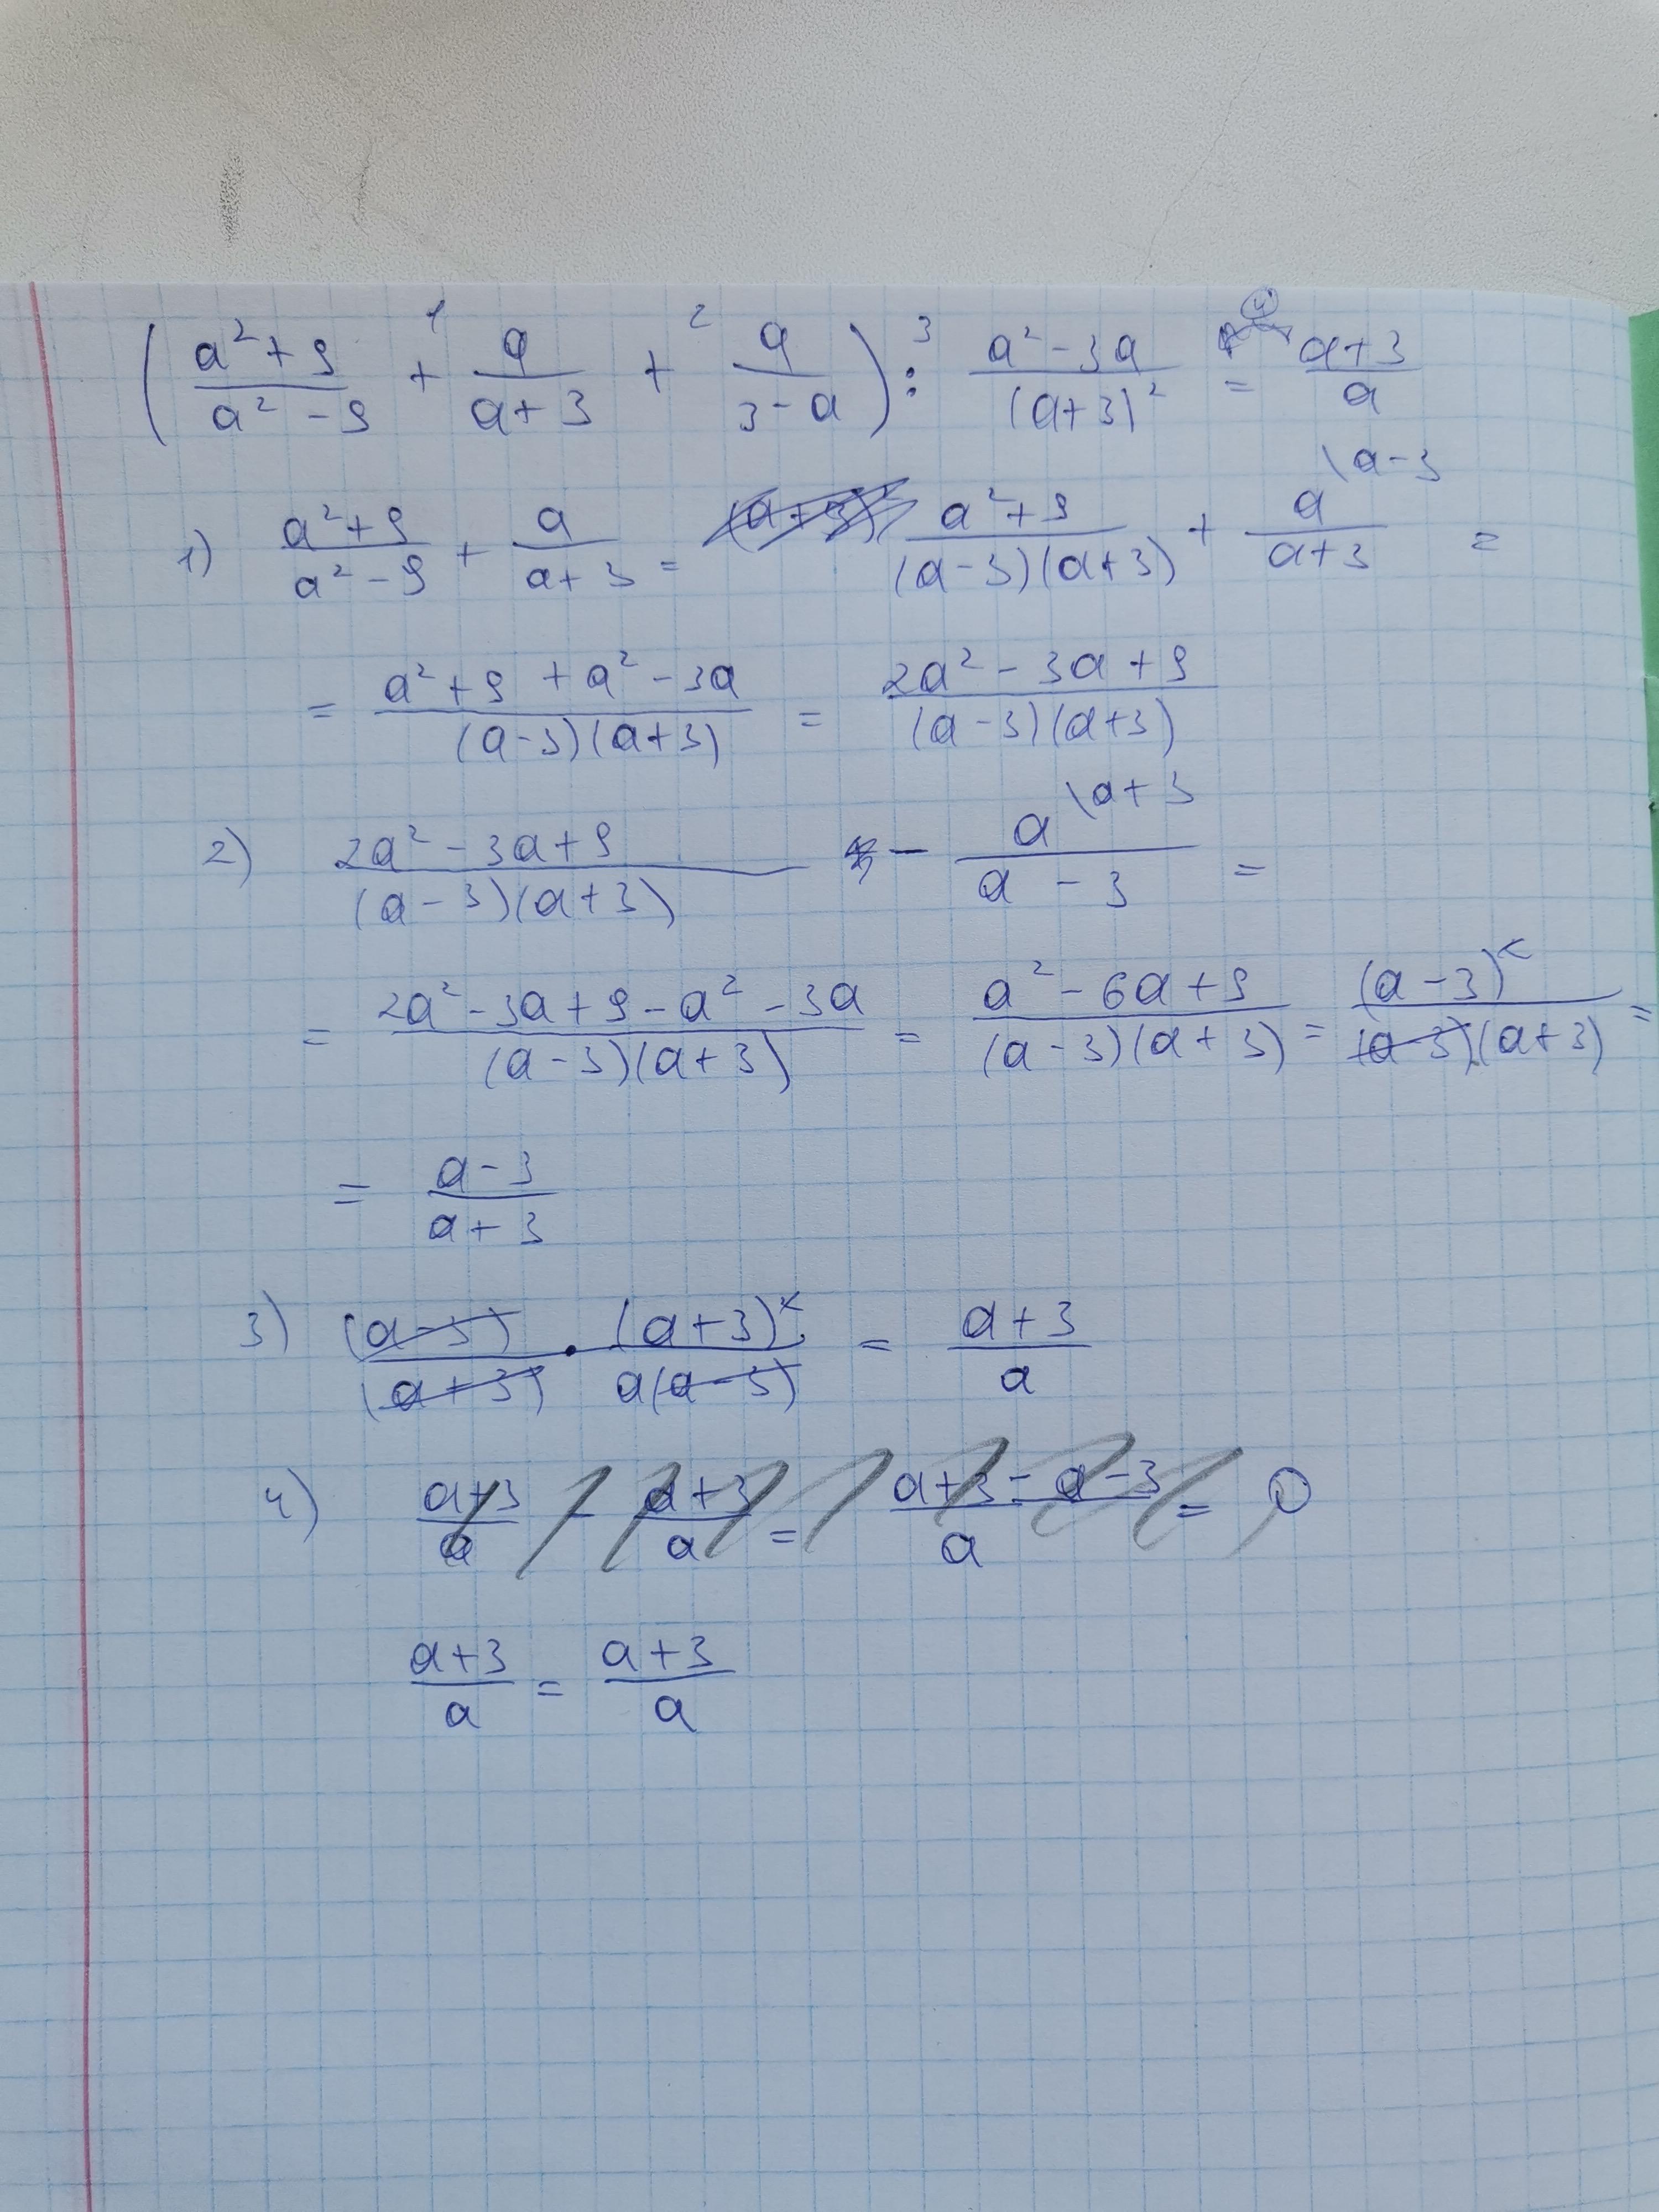 ( (a² + 9)/(a² - 9) +¹ a/(a + 3) +² a/(3 - a) ) :³ (a² - 3a)/(a + 3)² = (a + 3)/a
1) (a² + 9)/(a² - 9) + a/(a + 3) = (a² + 9)/((a - 3)(a + 3)) + a\a - 3/(a + 3) =
= (a² + 9 + a² - 3a)/((a - 3)(a + 3)) = (2a² - 3a + 9)/((a - 3)(a + 3))
2) (2a² - 3a + 9)/((a - 3)(a + 3)) - a\a + 3/(a - 3) =
= (2a² - 3a + 9 - a² - 3a)/((a - 3)(a + 3)) = (a² - 6a + 9)/((a - 3)(a + 3)) = (a - 3)²/((a - 3)(a + 3)) =
= (a - 3)/(a + 3)
3) (a - 3)/(a + 3) · (a + 3)²/(a(a - 3)) = (a + 3)/a
4) (a + 3)/a - (a + 3)/a = (a + 3 - a - 3)/a = 0
(a + 3)/a = (a + 3)/a